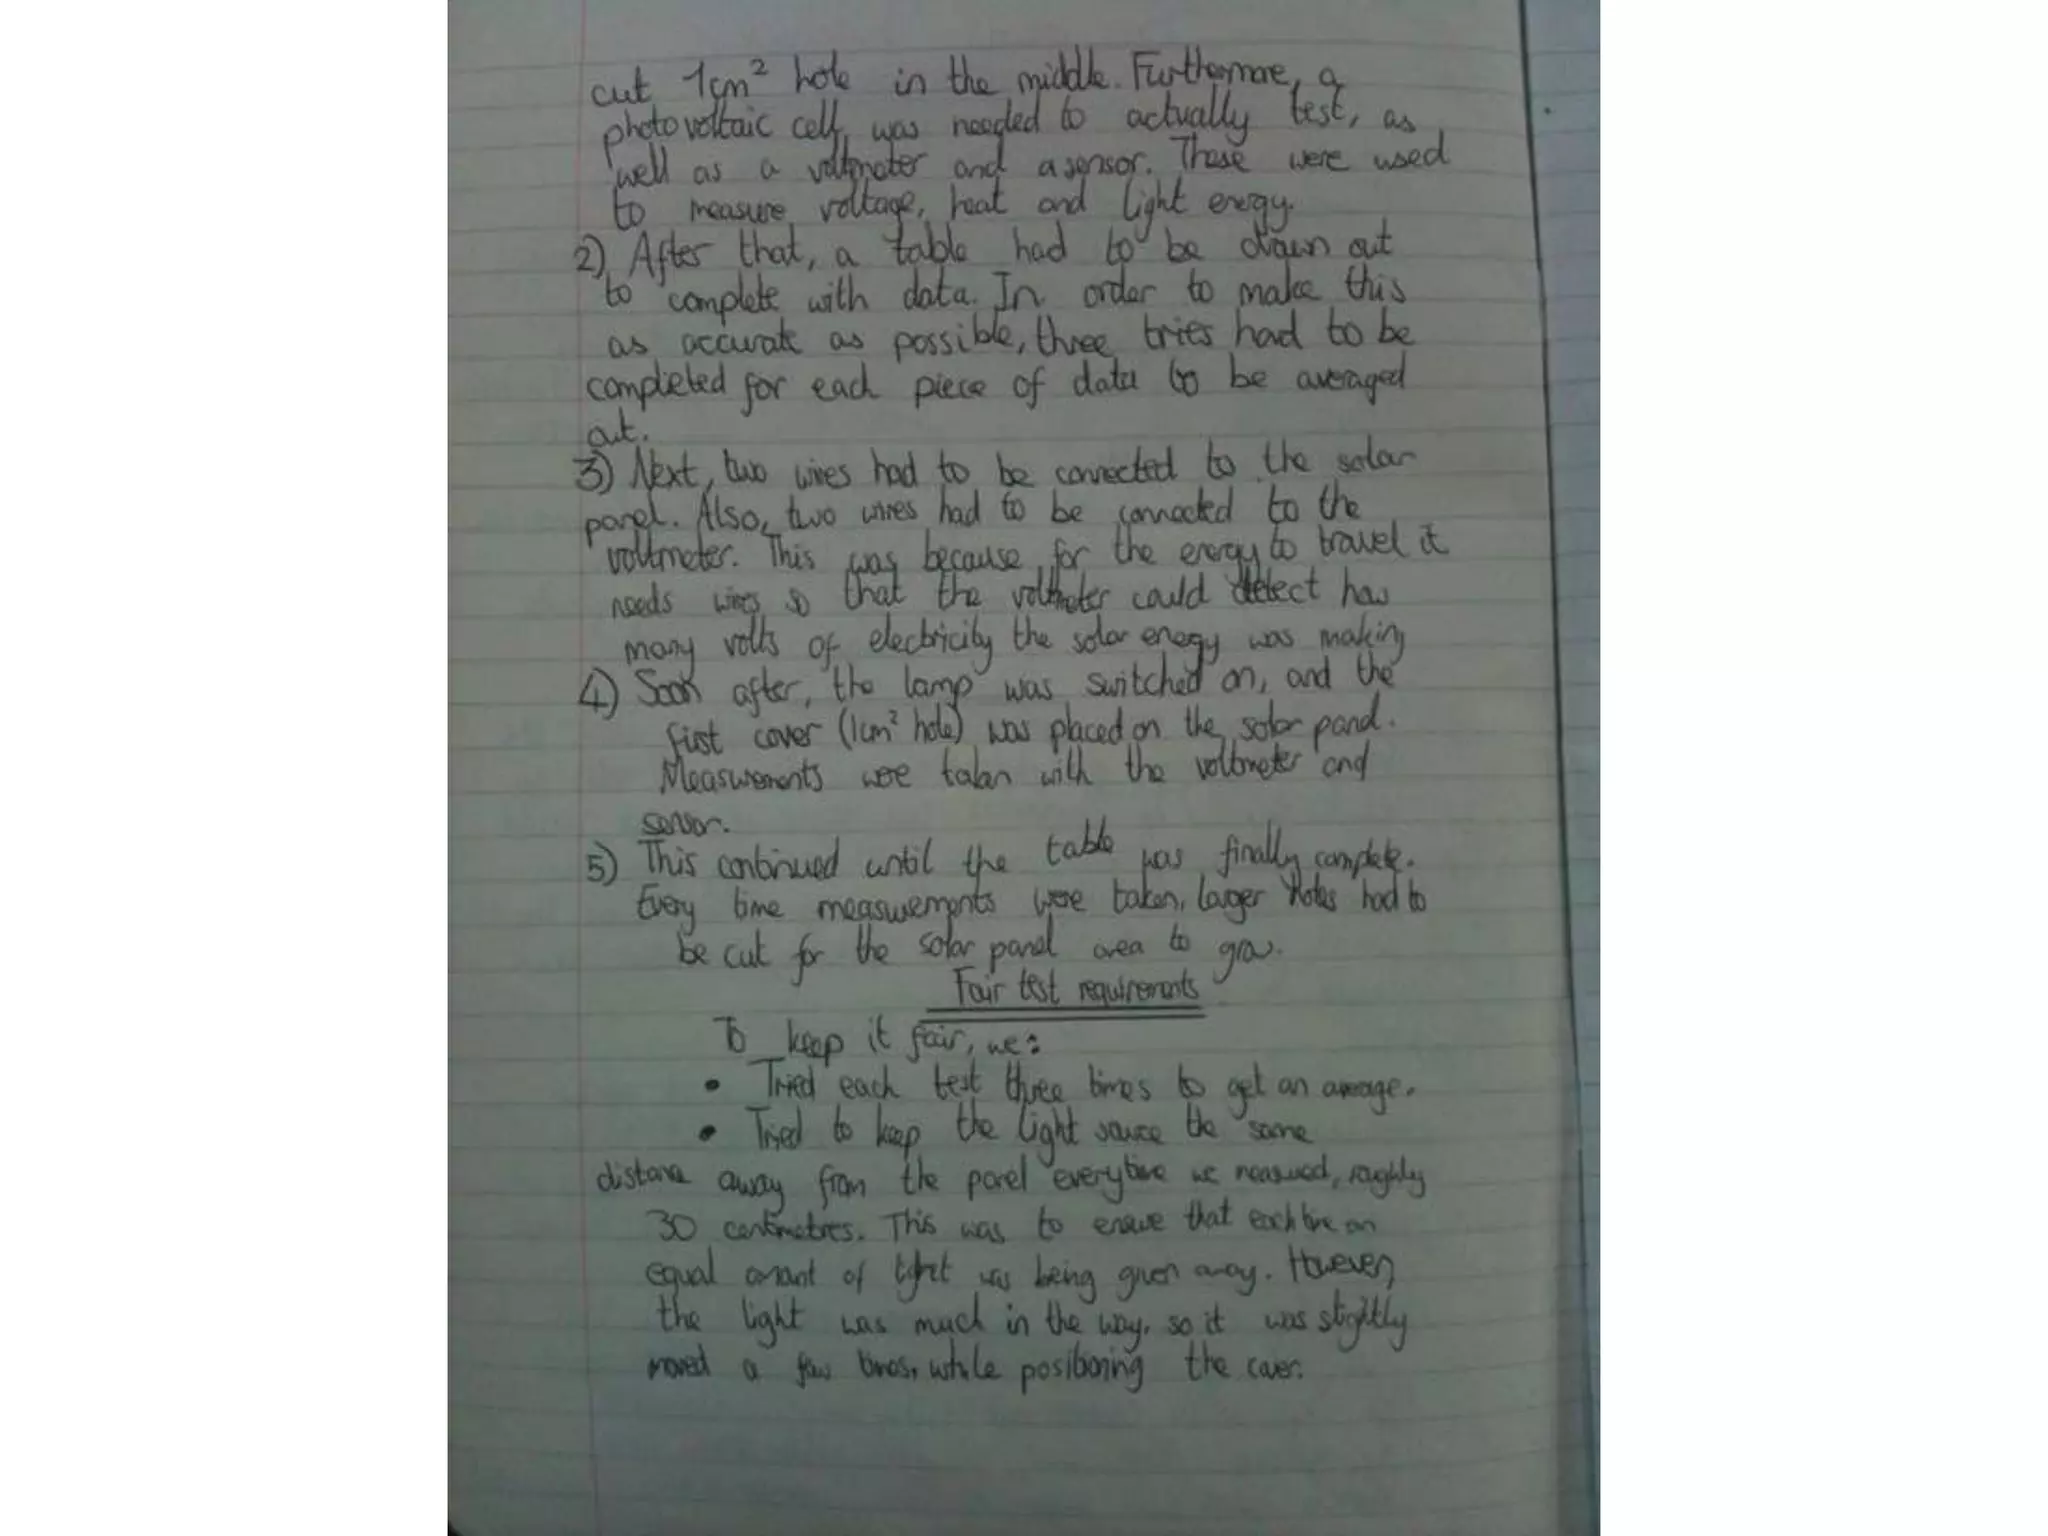 cut 1cm² hole in the middle. Furthermore, a
photovoltaic cell, was needed to actually test, as
well as a voltmeter and a sensor. These were used
to measure voltage, heat and light energy.
2) After that, a table had to be drawn out
to complete with data. In order to make this
as accurate as possible, three tries had to be
completed for each piece of data to be averaged
out.
3) Next, two wires had to be connected to the solar
panel. Also, two wires had to be connected to the
voltmeter. This was because for the energy to travel it
needs wires so that the voltmeter could detect how
many volts of electricity the solar energy was making
4) Soon after, the lamp was switched on, and the
first cover (1cm² hole) was placed on the solar panel.
Measurements were taken with the voltmeter and
sensor.
5) This continued until the table was finally complete.
Every time measurements were taken, larger holes had to
be cut for the solar panel area to grow.
Fair test requirements
To keep it fair, we:
• Tried each test three times to get an average.
• Tried to keep the light source the same
distance away from the panel everytime we measured, roughly
30 centimetres. This was to ensure that each time an
equal amount of light was being given away. However,
the light was much in the way, so it was slightly
moved a few times, while positioning the cover.